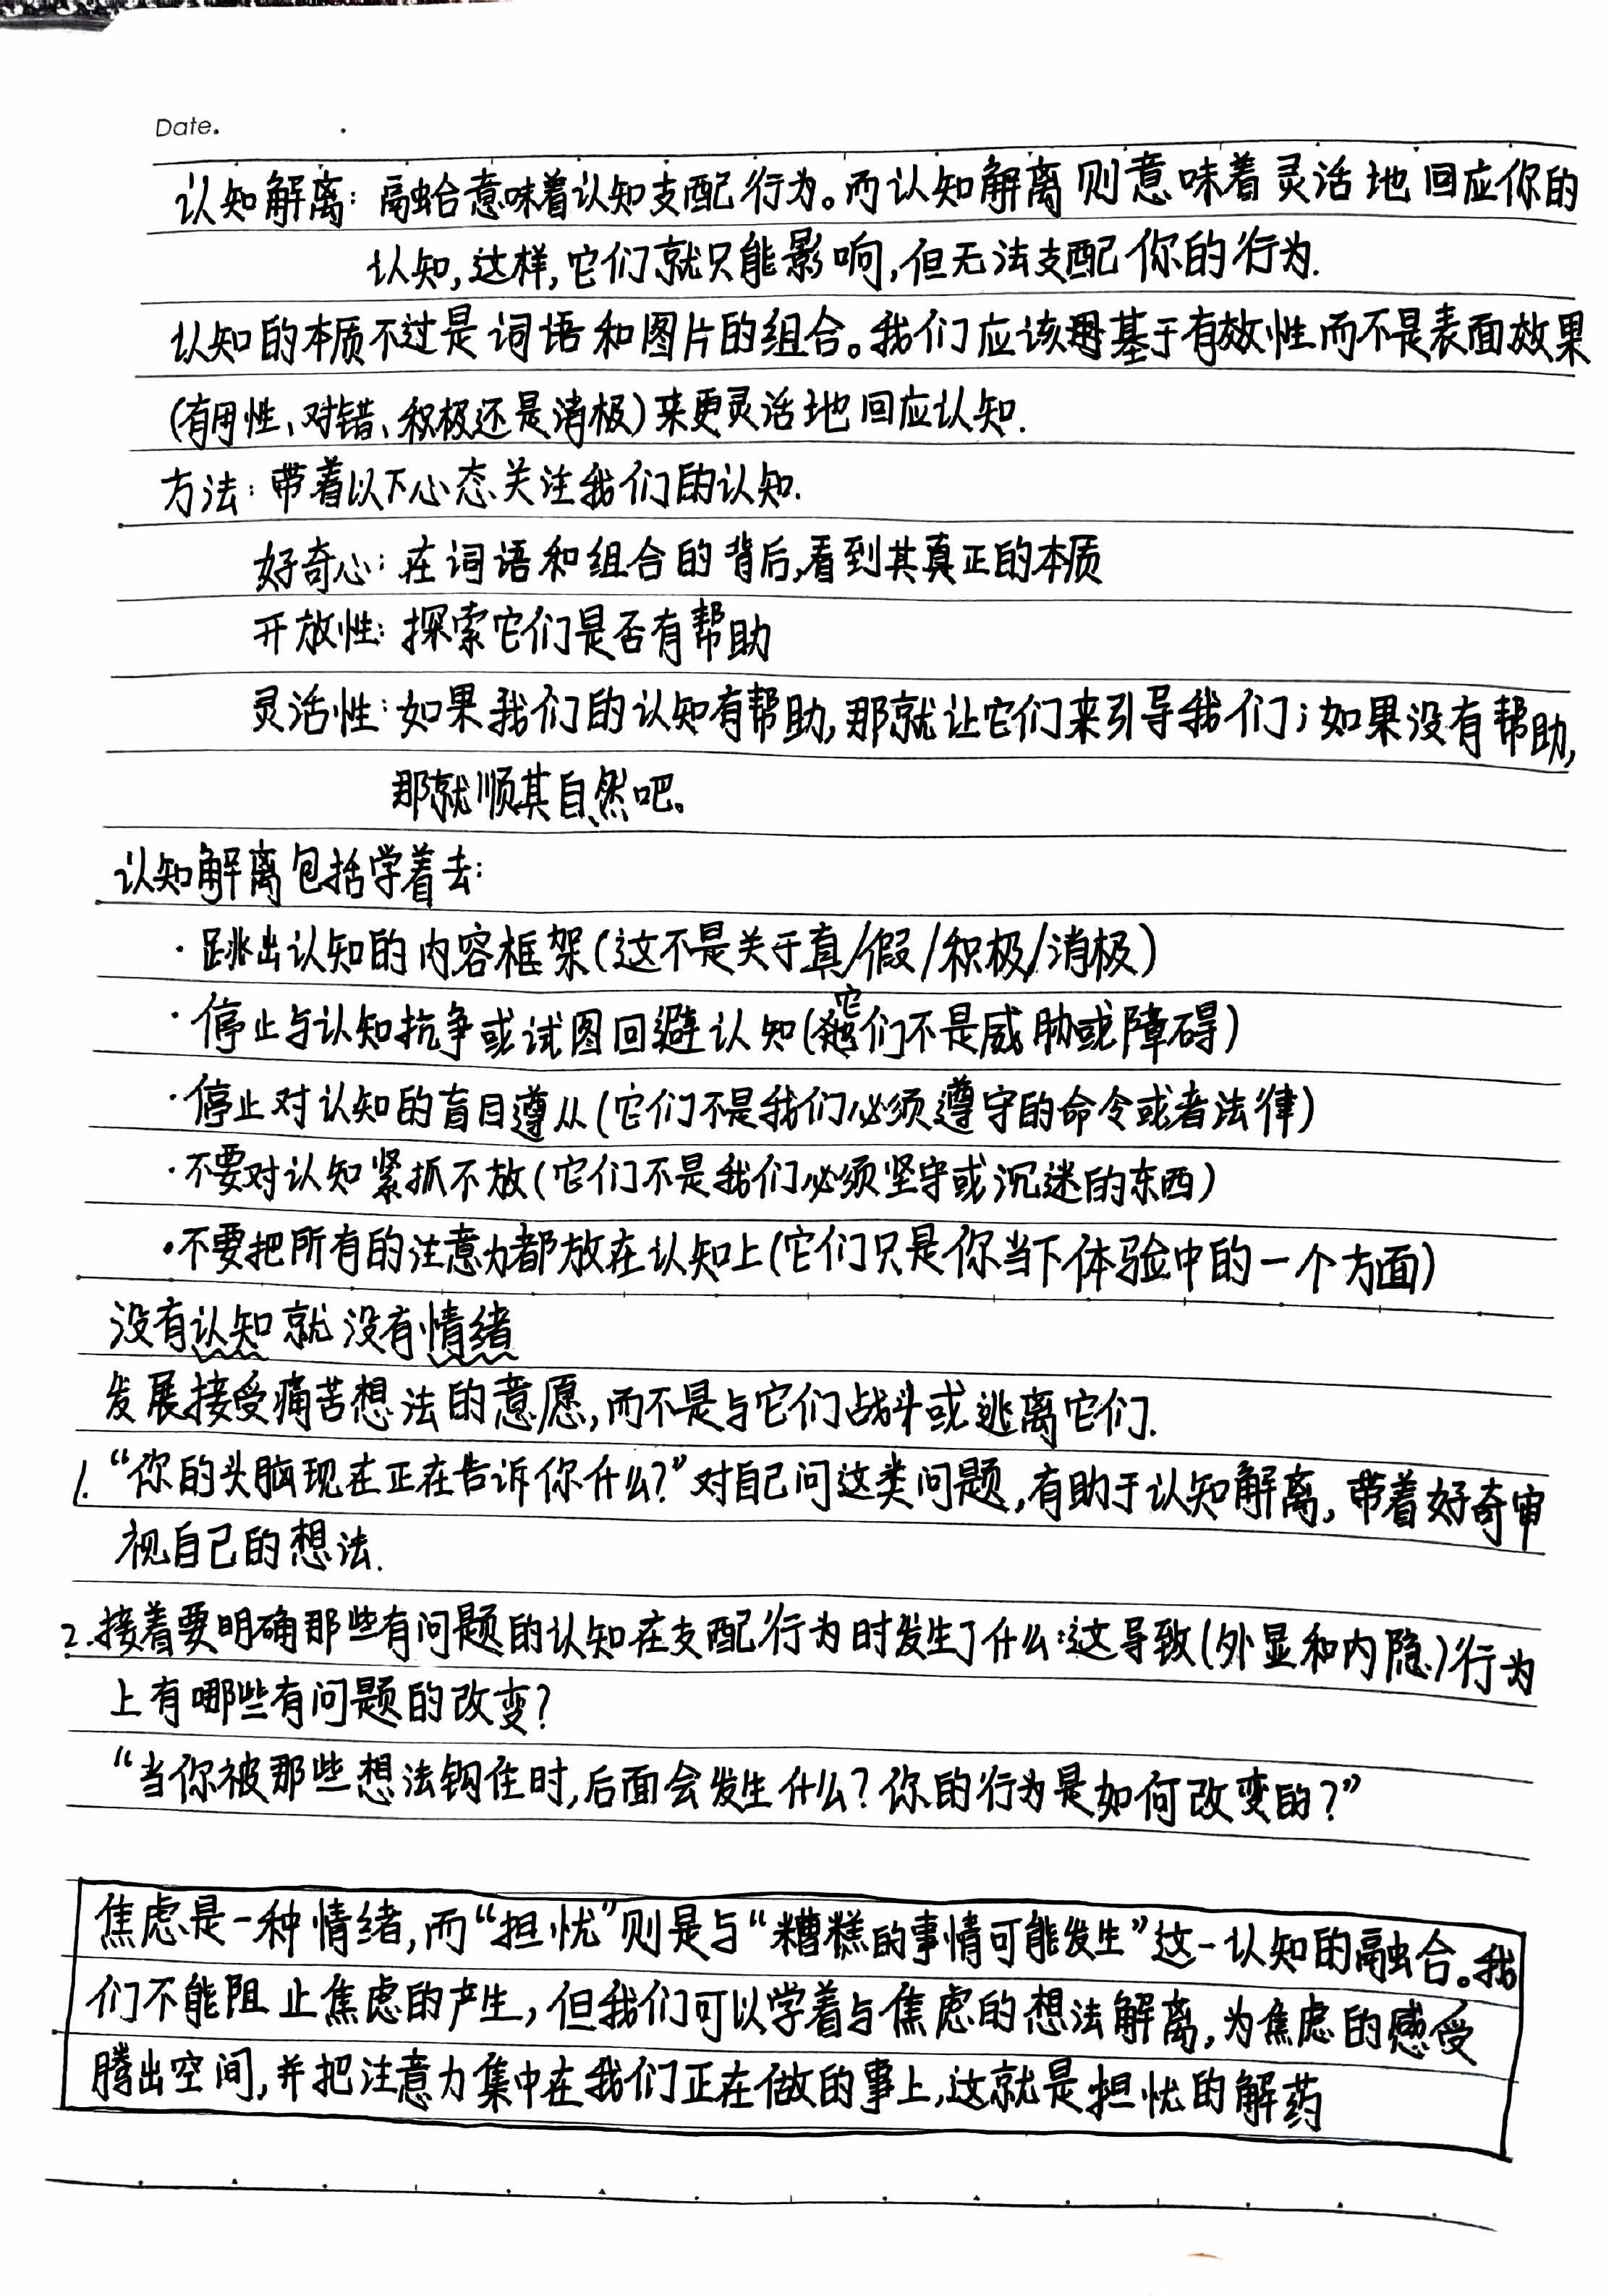 Date.
认知解离：融合意味着认知支配行为。而认知解离则意味着灵活地回应你的
认知,这样,它们就只能影响,但无法支配你的行为.
认知的本质不过是词语和图片的组合。我们应该基于有效性而不是表面效果
(有用性、对错、积极还是消极)来更灵活地回应认知.
方法：带着以下心态关注我们的认知.
好奇心：在词语和组合的背后,看到其真正的本质
开放性：探索它们是否有帮助
灵活性：如果我们的认知有帮助,那就让它们来引导我们；如果没有帮助,
那就顺其自然吧。
认知解离包括学着去：
·跳出认知的内容框架(这不是关于真/假/积极/消极)
·停止与认知抗争或试图回避认知(它们不是威胁或障碍)
·停止对认知的盲目遵从(它们不是我们必须遵守的命令或者法律)
·不要对认知紧抓不放(它们不是我们必须坚守或沉迷的东西)
·不要把所有的注意力都放在认知上(它们只是你当下体验中的一个方面)
没有认知就没有情绪
发展接受痛苦想法的意愿,而不是与它们战斗或逃离它们.
1.“你的头脑现在正在告诉你什么?”对自己问这类问题,有助于认知解离,带着好奇审
视自己的想法.
2.接着要明确那些有问题的认知在支配行为时发生了什么：这导致(外显和内隐)行为
上有哪些有问题的改变?
“当你被那些想法钩住时,后面会发生什么?你的行为是如何改变的?”
焦虑是一种情绪,而“担忧”则是与“糟糕的事情可能发生”这一认知的融合。我
们不能阻止焦虑的产生,但我们可以学着与焦虑的想法解离,为焦虑的感受
腾出空间,并把注意力集中在我们正在做的事上,这就是担忧的解药